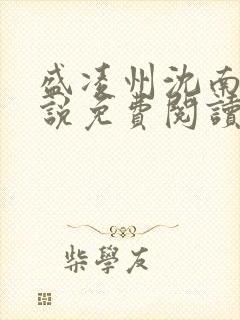 盛凌州沈南
說免費閱讀
柴學友